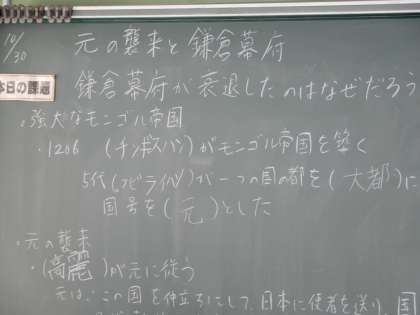 10/30
元の襲来と鎌倉幕府
本日の課題
鎌倉幕府が衰退したのはなぜだろう
・強大なモンゴル帝国
・1206 (チンギスハン)がモンゴル帝国を築く
5代(フビライハン)が一つの国の都を(大都)に
国号を(元)とした
・元の襲来
・(高麗)が元に従う
元は、この国を仲立ちにして、日本に使者を送り、国